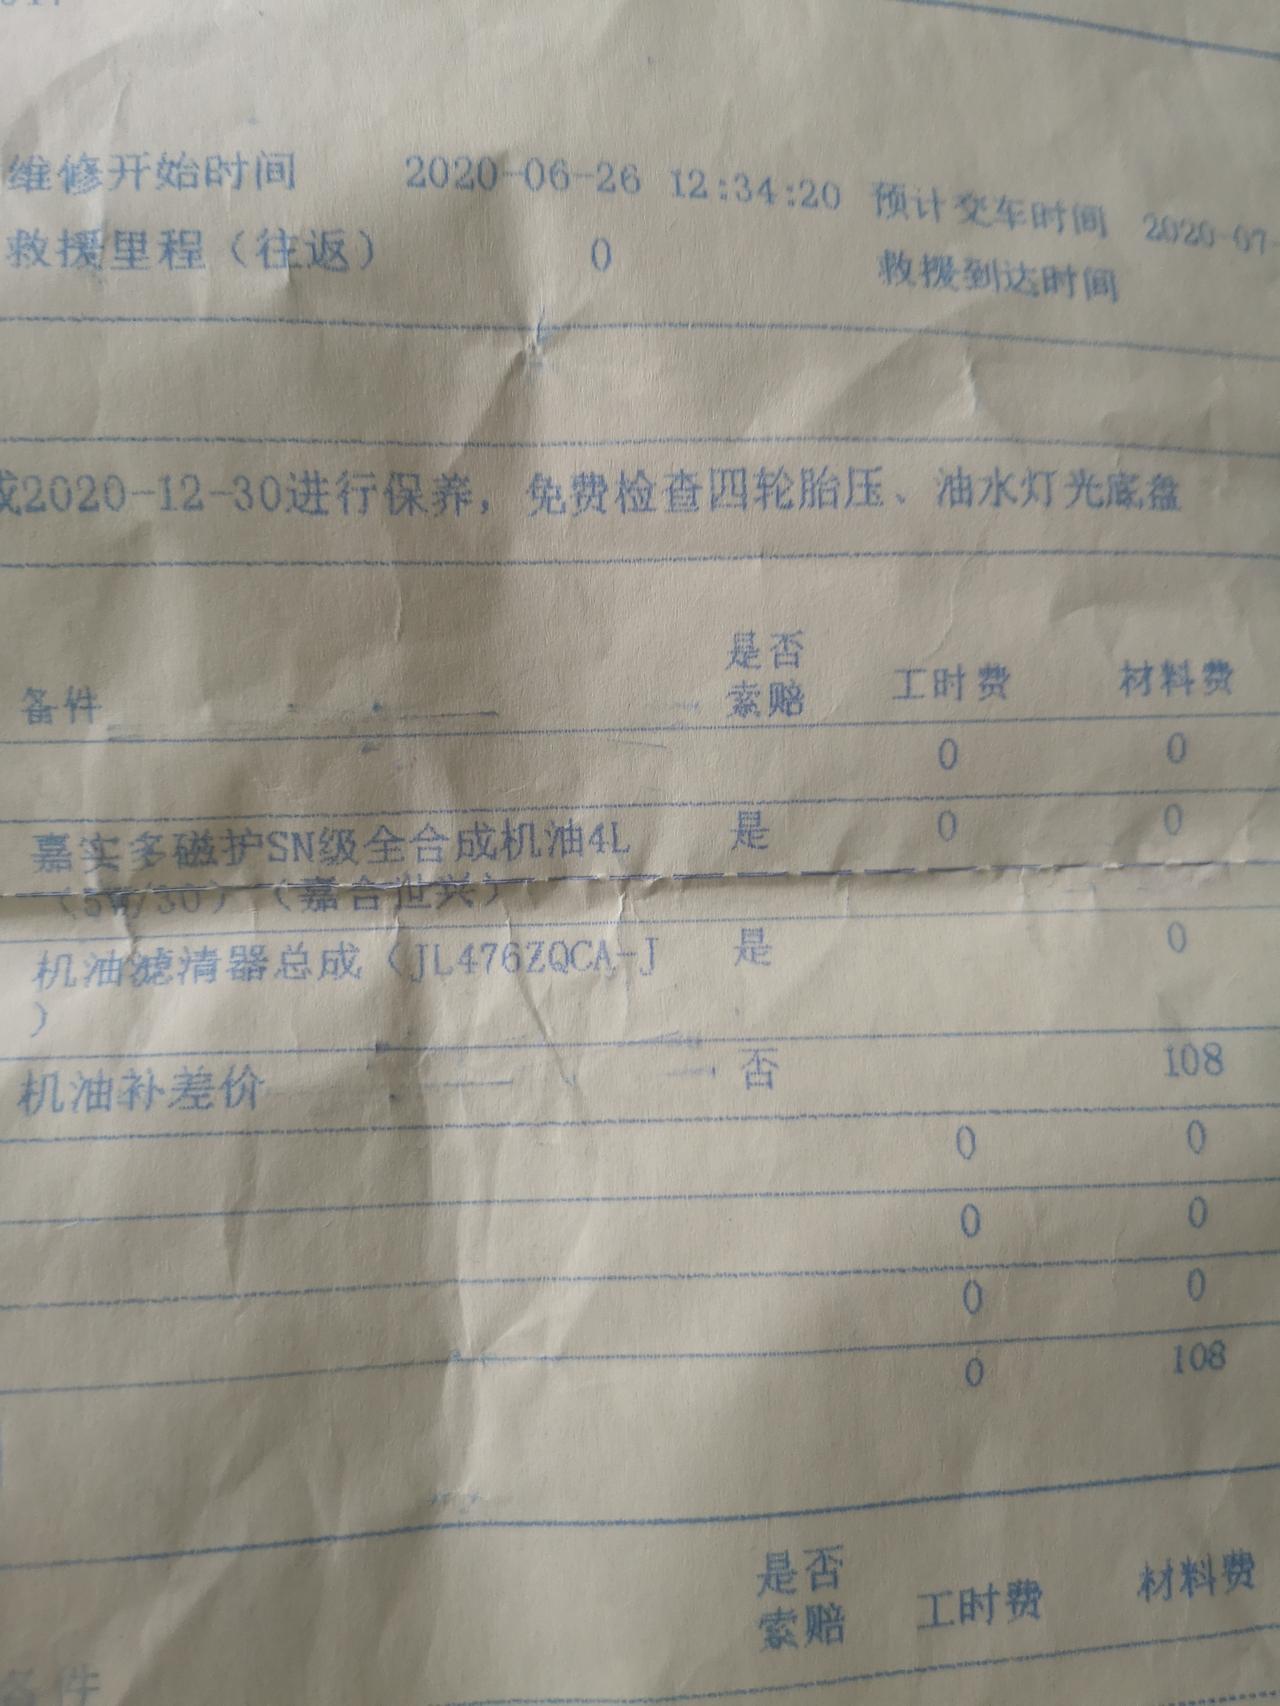 维修开始时间 2020-06-26 12:34:20 预计交车时间 2020-07-
救援里程（往返） 0 救援到达时间
2020-12-30进行保养，免费检查四轮胎压、油水灯光底盘
备件 是否索赔 工时费 材料费
0 0
嘉实多磁护SN级全合成机油4L 是 0 0
（5W/30）（嘉合世兴）
机油滤清器总成（JL476ZQCA-J 是 0
）
机油补差价 否 108
0 0
0 0
0 0
0 108
是否索赔 工时费 材料费
备件